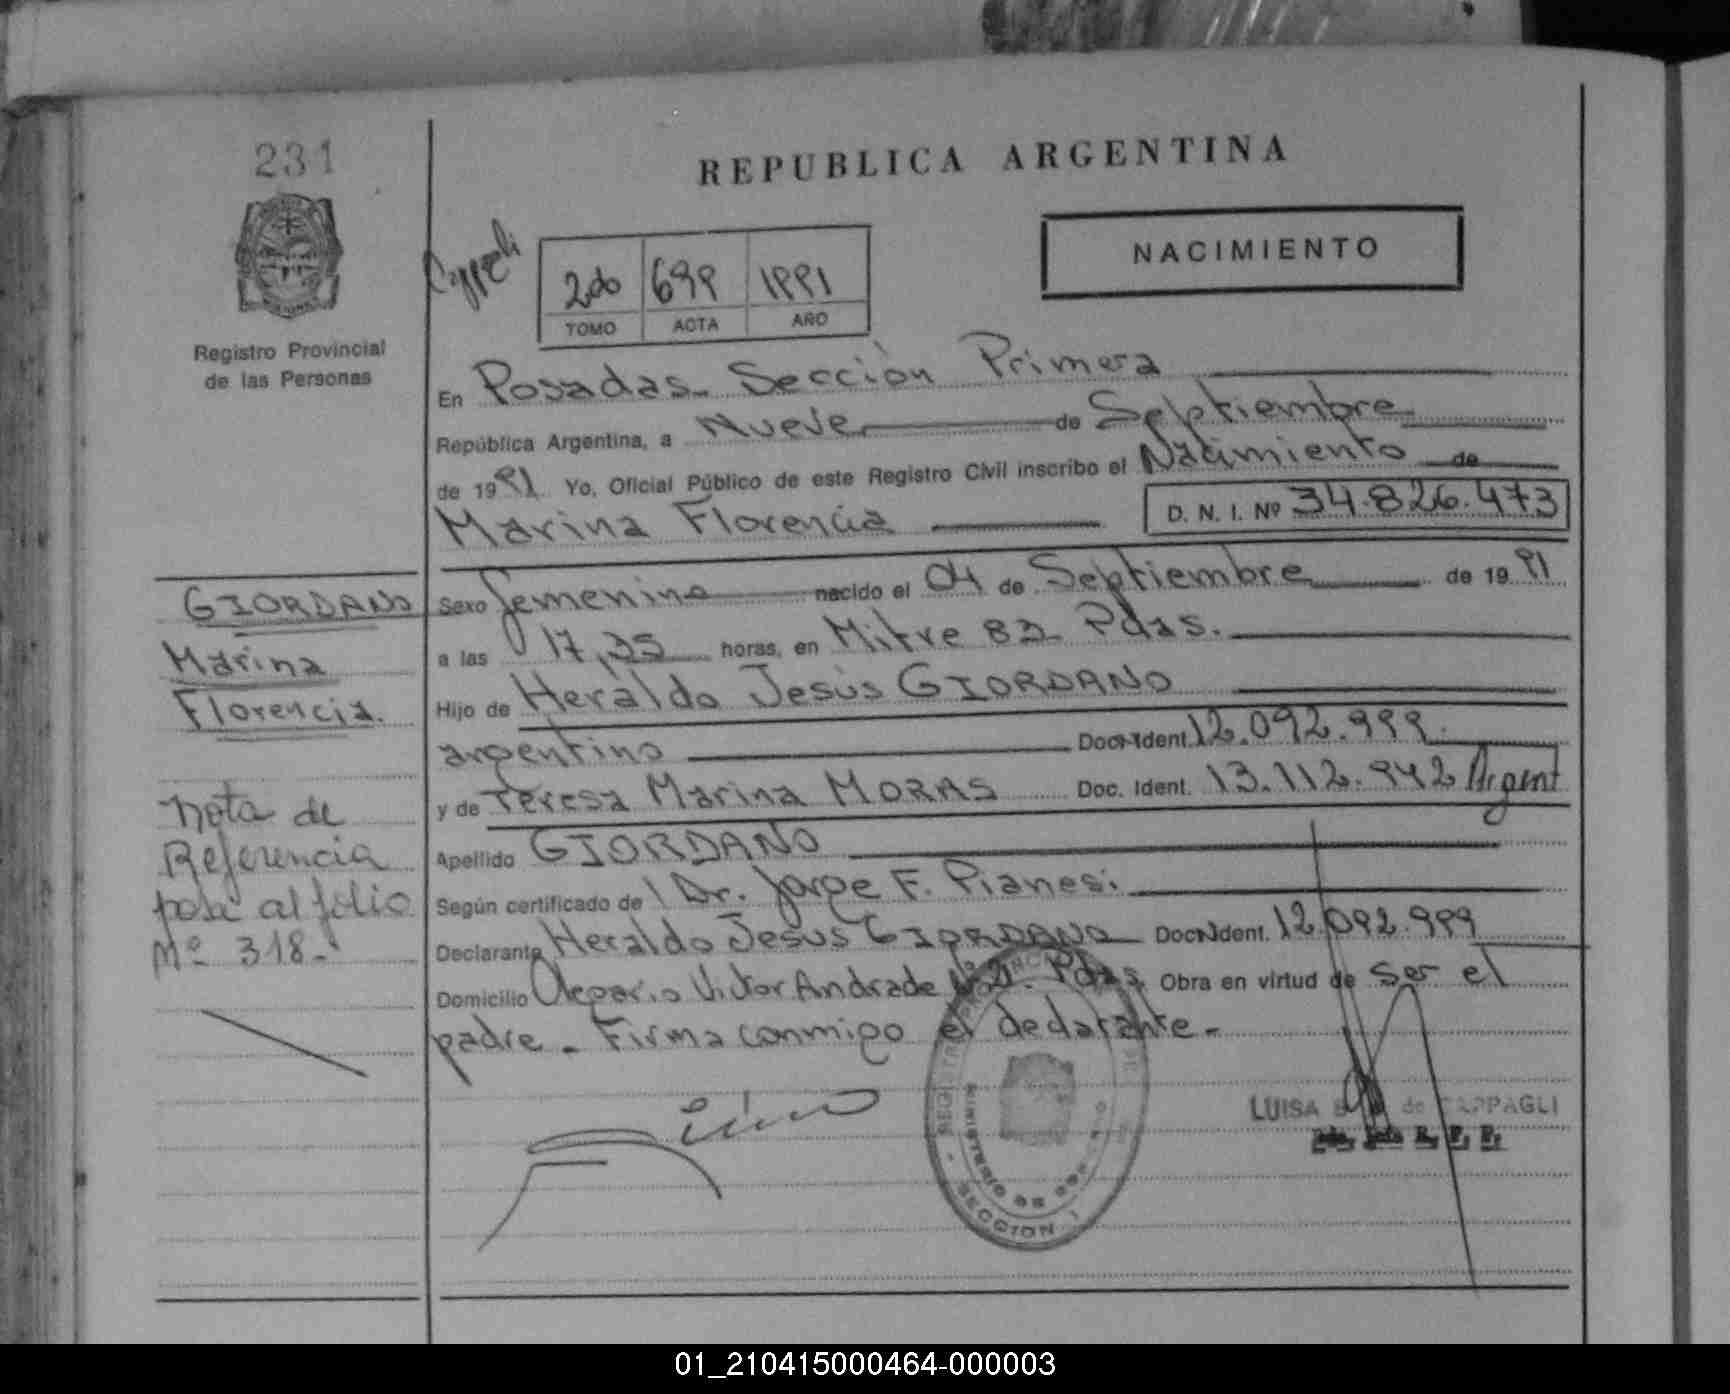 231
REPUBLICA ARGENTINA
NACIMIENTO
2do 699 1991
TOMO ACTA AÑO
Registro Provincial
de las Personas
En Posadas. Sección Primera
República Argentina, a Nueve de Septiembre
de 1991 Yo, Oficial Público de este Registro Civil inscribo el Nacimiento de
Marina Florencia D. N. I. Nº 34.826.473
GIORDANO
Marina
Florencia.
Sexo femenino nacido el 04 de Septiembre de 1991
a las 17,35 horas, en Mitre 82 Pdas.
Hijo de Heraldo Jesús GIORDANO
argentino Doc. Ident. 12.092.999.
y de Teresa Marina MORAS Doc. Ident. 13.112.942 Argent
Apellido GIORDANO
Según certificado de Dr. Jorge F. Pianesi
Declarante Heraldo Jesús GIORDANO Doc. Ident. 12.092.999
Domicilio Olegario Victor Andrade Pdas. Obra en virtud de ser el
padre. Firma conmigo el declarante.
Nota de
Referencia
pase al folio
Nº 318.-
LUISA de CAPPAGLI
SECCION 1
01_210415000464-000003